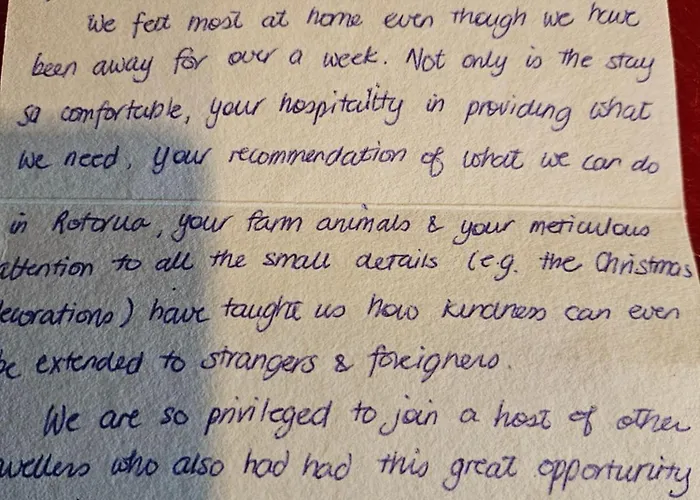 We felt most at home even though we have
been away for over a week. Not only is the stay
so comfortable, your hospitality in providing what
we need, your recommendation of what we can do
in Rotorua, your farm animals & your meticulous
attention to all the small details (e.g. the Christmas
decorations) have taught us how kindness can even
be extended to strangers & foreigners.
We are so privileged to join a host of other
wellers who also had had this great opportunity